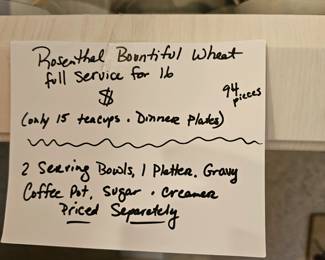 Rosenthal Bountiful Wheat
full Service for 16
$
94 pieces
(only 15 teacups • Dinner Plates)
2 Serving Bowls, 1 Platter, Gravy
Coffee Pot, Sugar • Creamer
Priced Separately